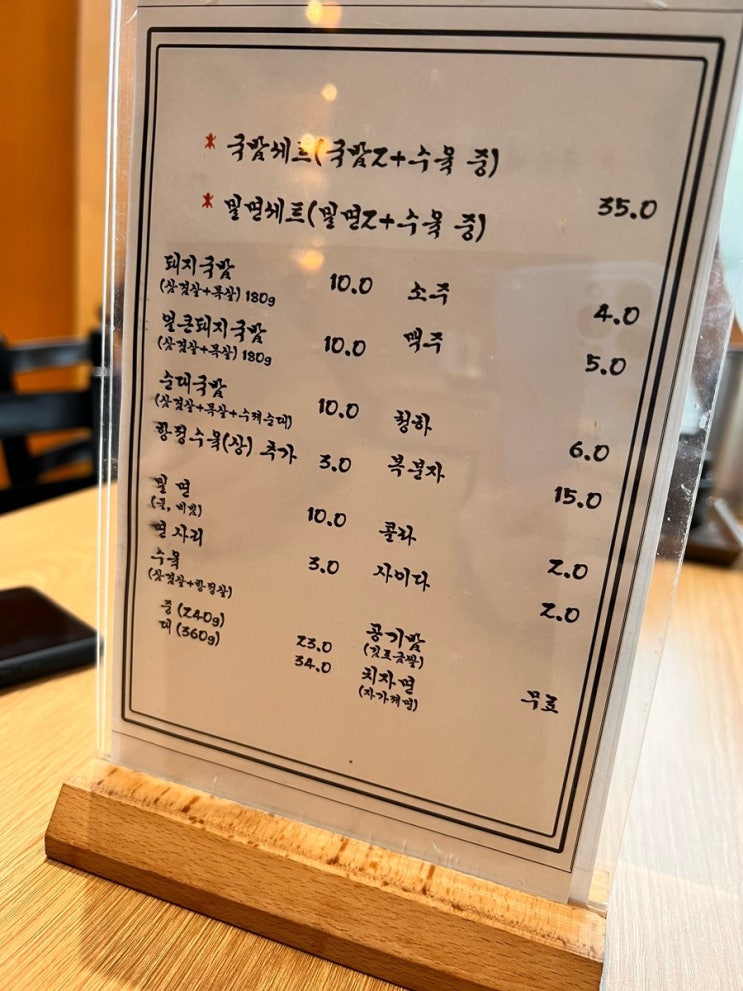 * 국밥세트(국밥2+수육 중)
* 밀면세트(밀면2+수육 중) 35.0
돼지국밥 10.0
(삼겹살+목살) 180g
얼큰돼지국밥 10.0
(삼겹살+목살) 180g
순대국밥 10.0
(삼겹살+목살+수제순대)
항정수육(상) 추가 3.0
밀면 10.0
(물, 비빔)
면사리 3.0
수육
(삼겹살+항정살)
중 (240g) 23.0
대 (360g) 34.0
소주 4.0
맥주 5.0
청하 6.0
복분자 15.0
콜라 2.0
사이다 2.0
공기밥
치자면 무료
(자가제면)